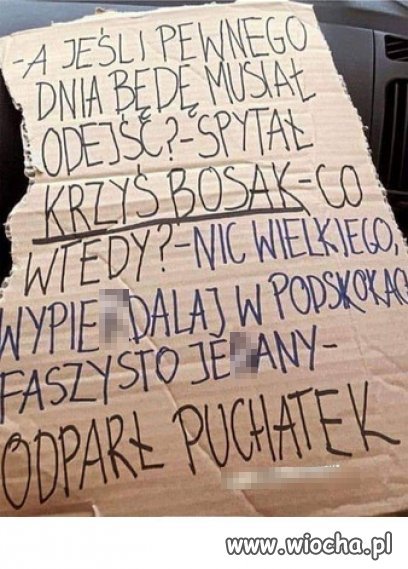 -A JEŚLI PEWNEGO
DNIA BĘDĘ MUSIAŁ
ODEJŚĆ?-SPYTAŁ
KRZYŚ BOSAK-CO
WTEDY?-NIC WIELKIEGO,
WYPIE DALAJ W PODSKOKACH
FASZYSTO JE ANY-
ODPARŁ PUCHATEK
www.wiocha.pl